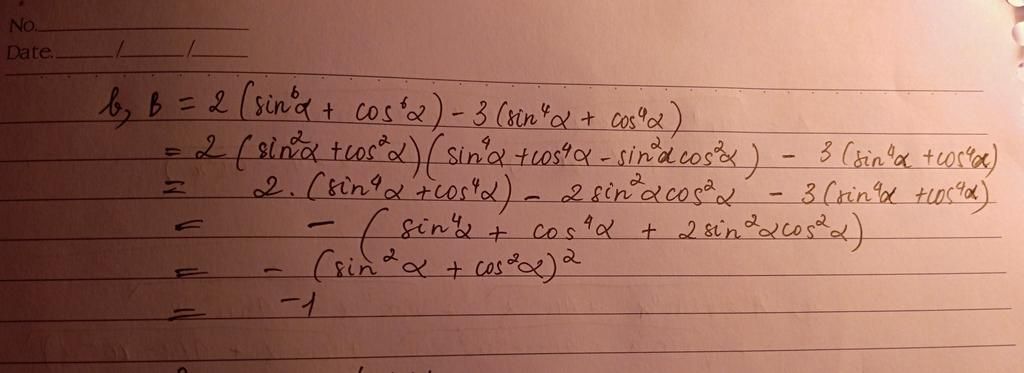 No.
Date. / /
b, B = 2 (sin⁶α + cos⁶α) - 3 (sin⁴α + cos⁴α)
= 2 (sin²α + cos²α) (sin⁴α + cos⁴α - sin²α cos²α) - 3 (sin⁴α + cos⁴α)
= 2. (sin⁴α + cos⁴α) - 2 sin²α cos²α - 3 (sin⁴α + cos⁴α)
= - (sin⁴α + cos⁴α + 2 sin²α cos²α)
= - (sin²α + cos²α)²
= -1